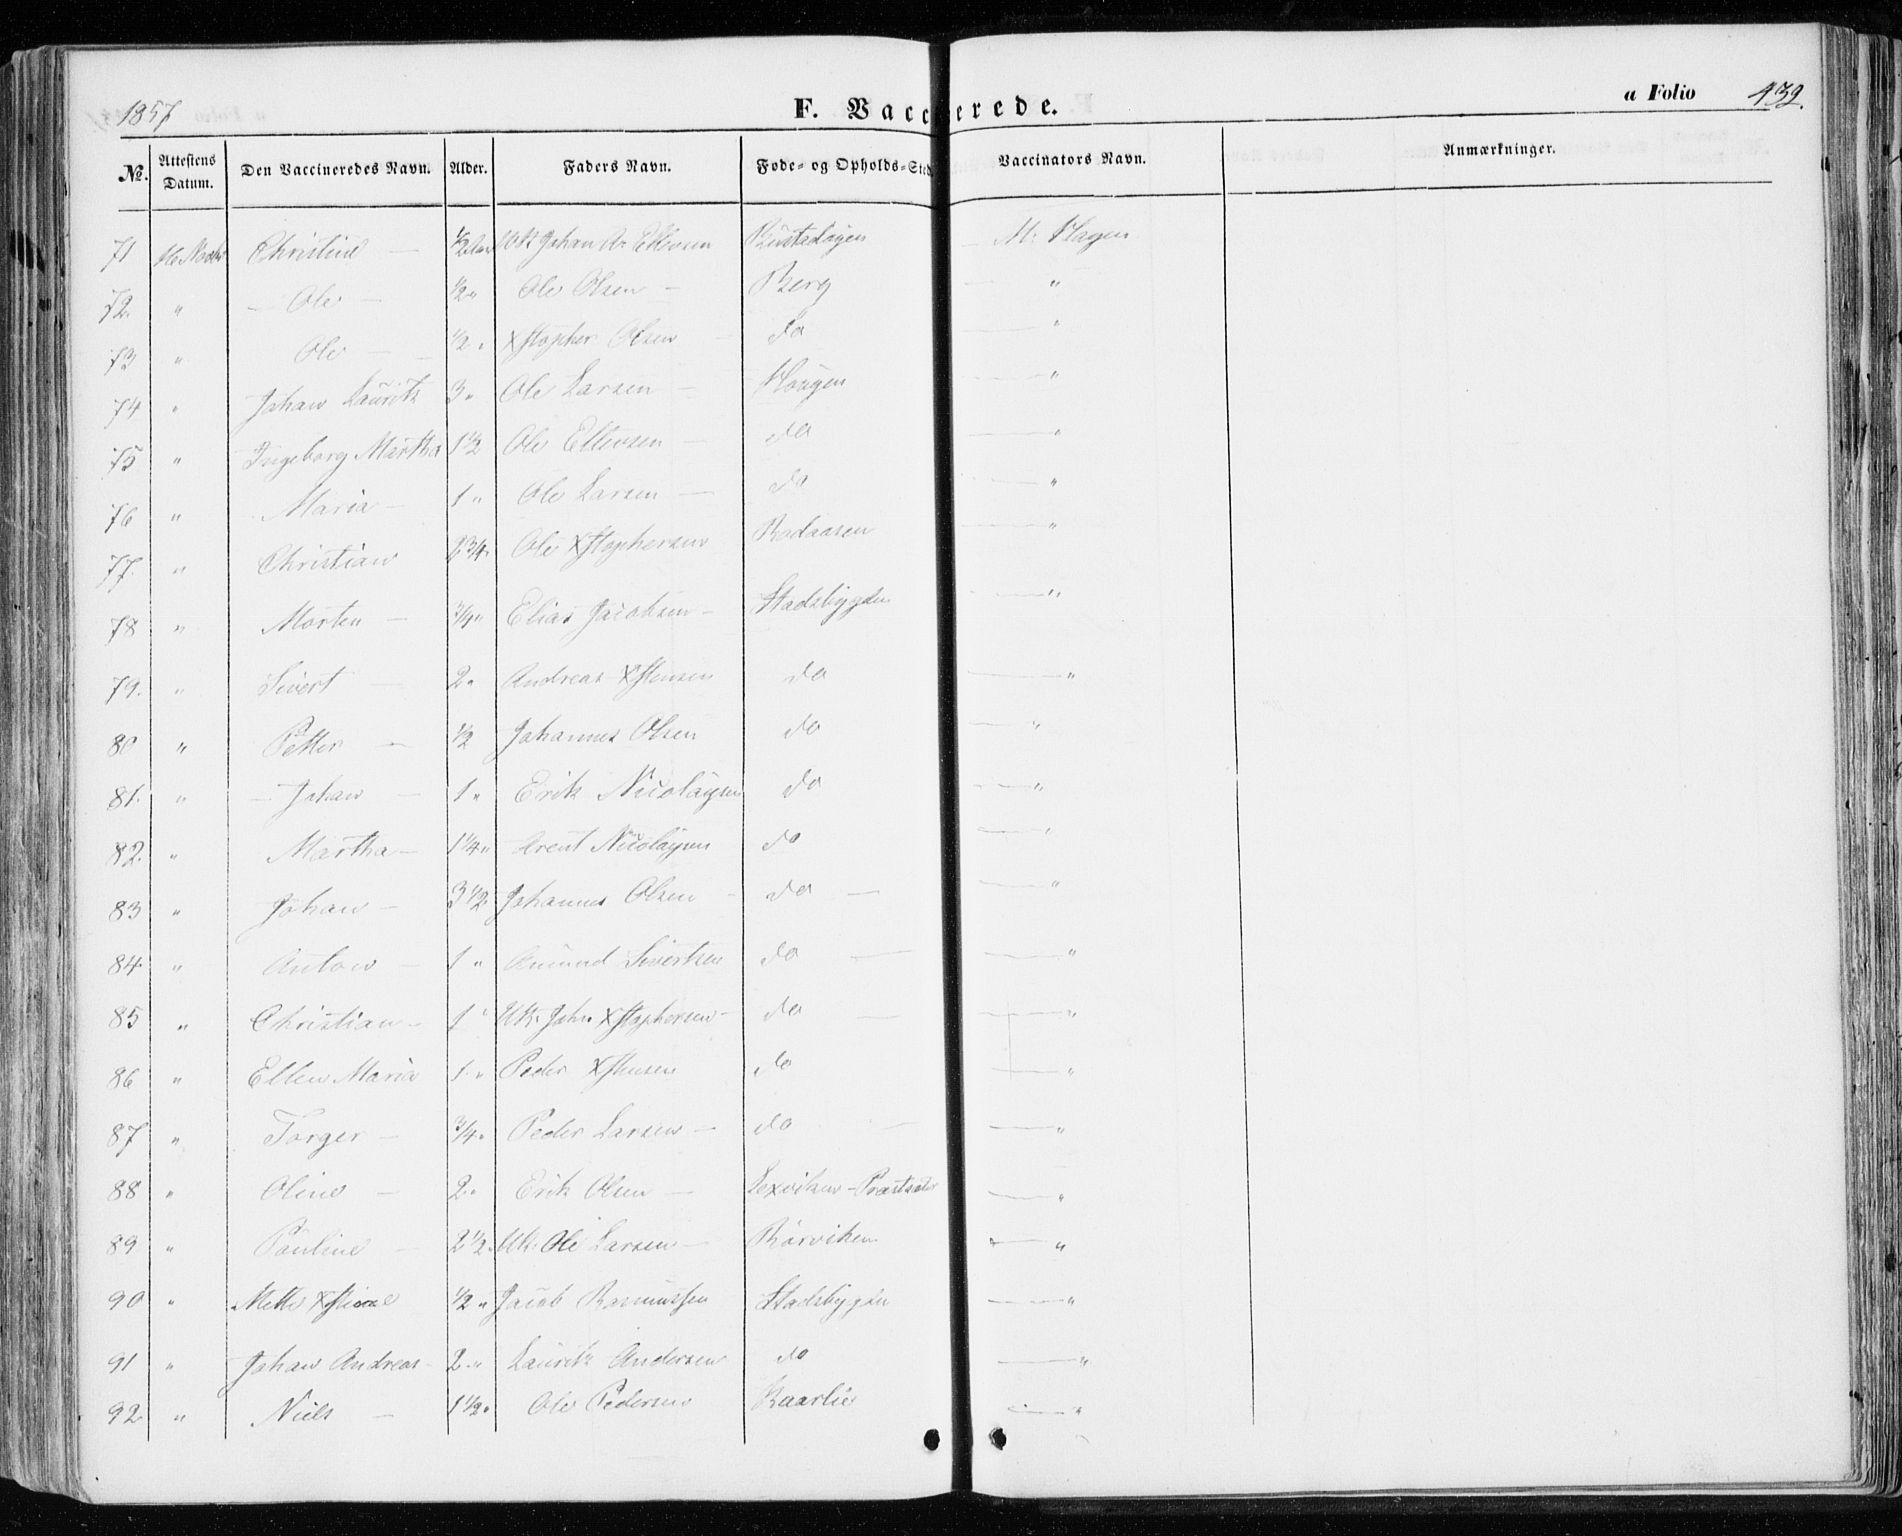 1857 F. Vaccinerede. a Folio 439.
No. Attestens Datum. Den Vaccineredes Navn. Alder. Faders Navn. Føde- og Opholds-Sted Vaccinators Navn. Anmærkninger.
71 Christine — ½ Johan Ellevsen M: Hagen
72. " — Ole — ½ " Ole Olsen — Berg — "
73 " Ole — ½ " Xstopher Olsen — do — "
74 " Johan Lauritz 3 " Ole Larsen — Haugen — "
75 " Ingeborg Martha 1½ Ole Ellevsen — do — "
76 " Maria — 1 " Ole Larsen — do — "
77. " Christian 2¾ " Ole Xstophersen Rodaasen — "
78 " Morten — ¾ " Elias Jacobsen — Stadsbygden — "
79. " Sivert — 2 " Andreas Xstensen do — "
80 " Petter — ½ Johannes Olsen do — "
81. " — Johan — 1 " Erik Nicolaysen do — "
82. " Martha — 1¼ " Arent Nicolaysen do — "
83 " Johan — 3½ " Johannes Olsen — do — — "
84 " Anton — 1 " Amund Sivertsen do — — "
85 " Christian — 1 " Uk. Joh. Xstophersen — do — — "
86 " Ellen Maria 1. " Peder Xstensen do — "
87 " Torger — ¾ " Peder Larsen — do — — "
88 " Oline — 2 " Erik Olsen — Lexviken — — "
89 " Pauline — 2½ " Uk: Ole Larsen — Rørviken — "
90 " Mette Xstine ½ " Jacob Rasmussen Stadsbygden — "
91 " Johan Andreas — 2 " Lauritz Andersen do — "
92 " Niels — 1½ " Ole Pedersen Raarlie — "